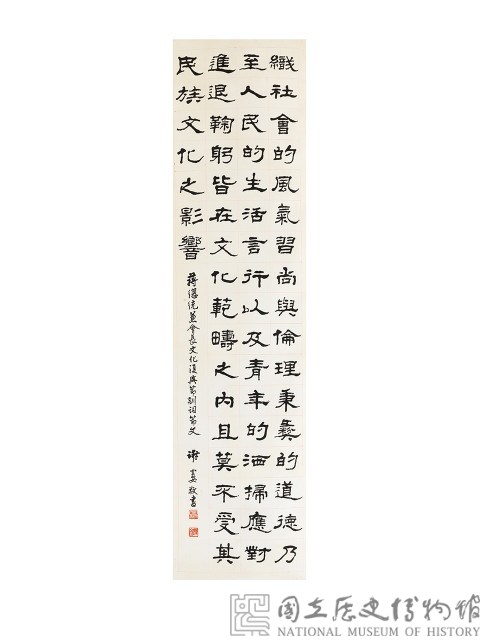 織社會的風氣習尚與倫理秉彝的道德乃
至人民的生活言行以及青年的洒掃應對
進退鞠躬皆在文化範疇之內且莫不受其
民族文化之影響
蔣總統兼會長文化復興節訓詞節文 謝敬書
國立歷史博物館
NATIONAL MUSEUM OF HISTORY